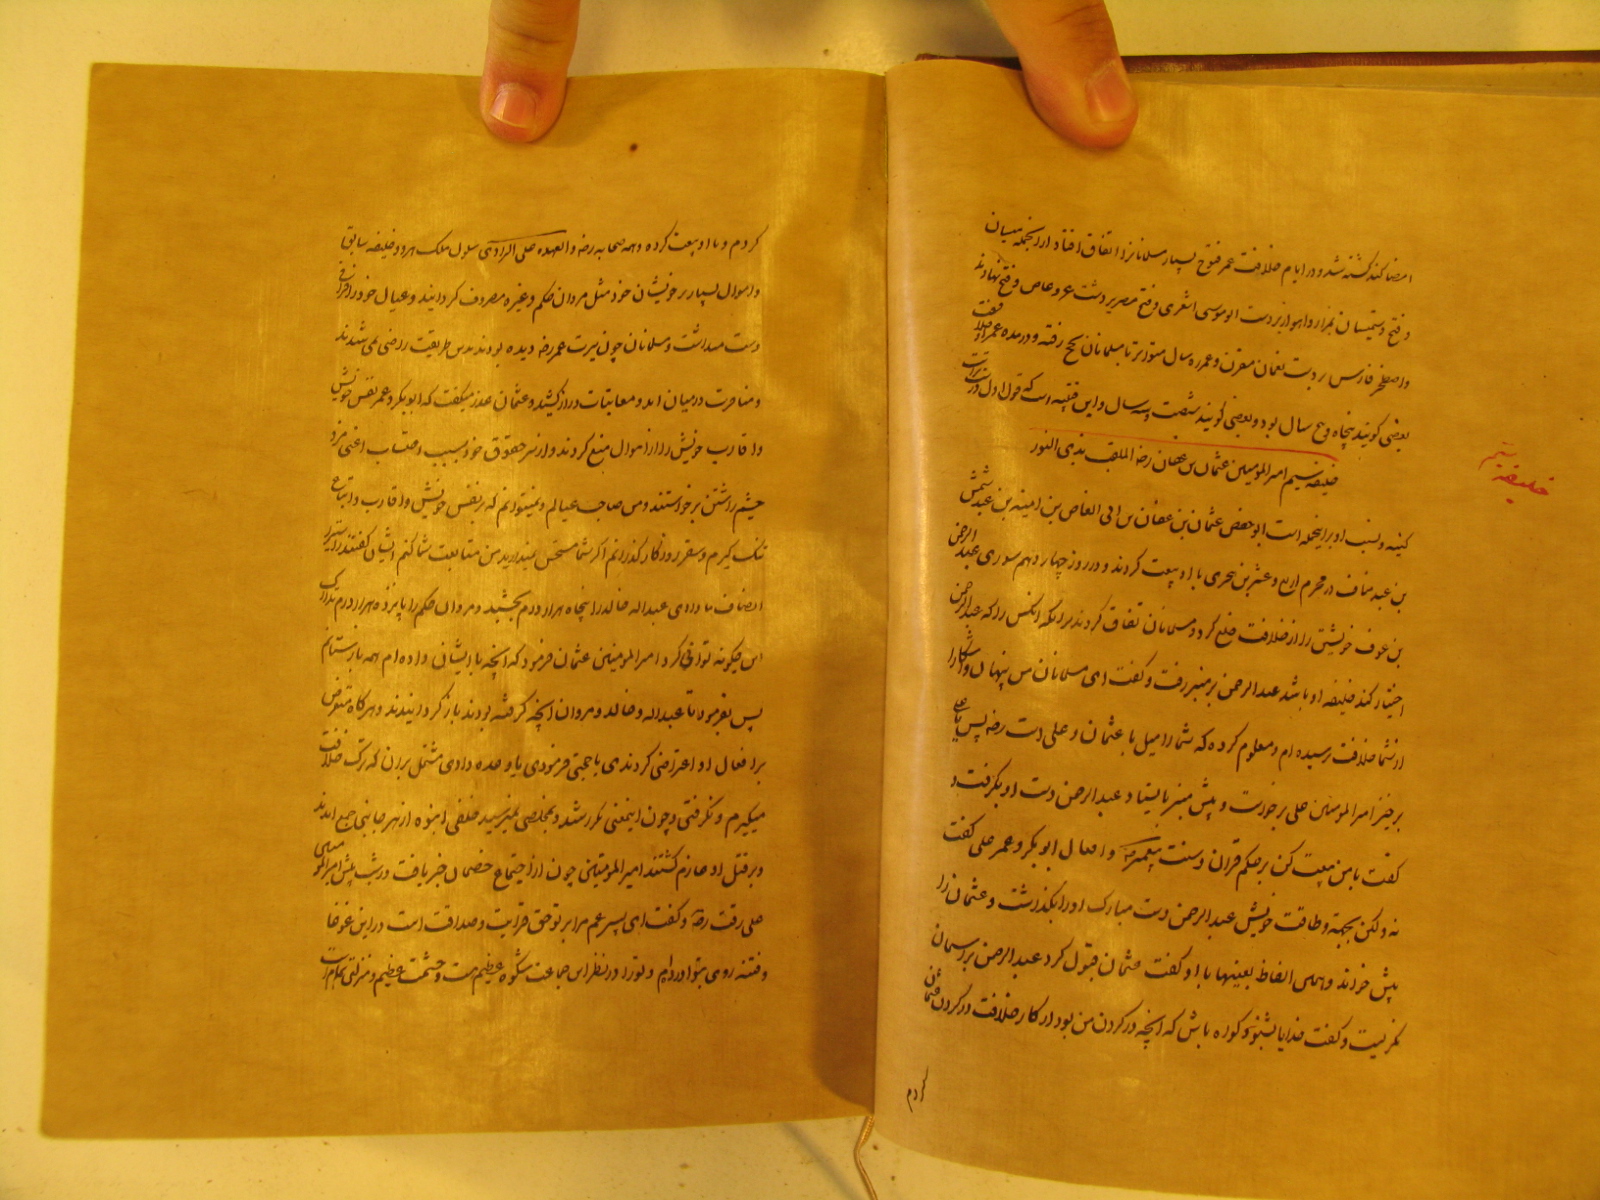 امضا کند کشته شد و در ایام خلافت عمر فتوح بسیار مسلمانانرا اتفاق افتاد از انجمله میسان
و فتح دستمیسان و اهواز بر دست ابو موسی اشعری و فتح مصر بر دست عمرو عاص و فتح نهاوند
و اصطخر فارس بر دست نعمان مقرن و عمر ده سال متواتر با مسلمانان بحج رفته و در مدت عمر او
بعضی کویند پنجاه و پنج سال بود و بعضی کویند شصت و سال و این که قول اول
خلیفه سیم
خلیفه سیم امیر المومنین عثمان بن عفان رضه الملقب بذی النور
کنیه و نسب او برینجمله است ابو حفص عثمان بن عفان بن ابی العاص بن امیه بن عبد شمس
بن عبد مناف در محرم اربع و عشرین هجری با او بیعت کردند و در روز چهاردهم شوری عبد الرحمن
بن عوف خویشتن را از خلافت خلع کرد و مسلمانان اتفاق کردند برانکه انکس را که عبد الرحمن
اختیار کند خلیفه او باشد عبد الرحمن بر منبر رفت و کفت ای مسلمانان من پنهان و اشکارا
از شما خلافت پرسیده ام و معلوم کرده که شما را میل با عثمان و علی است رضه پس یا علی
بر خیز امیر المومنین علی برخواست و پیش منبر بایستاد عبد الرحمن دست او بکرفت و
کفت با من بیعت کن بر حکم قران و سنت پیغمبر و افعال ابو بکر و عمر علی کفت
نه ولکن بجهد و طاقت خویش عبد الرحمن دست مبارک او را بکذاشت و عثمان را
پیش خواند و همین الفاظ بعینها با او کفت عثمان قبول کرد عبد الرحمن بر اسمان
نکریست و کفت خدایا بشنو و کواه باش که انچه در کردن من بود از کار خلافت در کردن عثمان
کردم
کردم و با او بیعت کرده و همه صحابه رضه و العهده علی الراوی سلوک ملک هر دو خلیفه سابق
و اموال بسیار بر خویشان خود مثل مروان حکم و غیره مصروف کردانید و عیال خود را
دست میداشت و مسلمانان چون سیرت عمر رضه دیده بودند بدین طریقت راضی نمی شدند
و منافرت در میان امد و معاتبات دراز کشید و عثمان عذر میکفت که ابو بکر و عمر نفس خویش
و اقارب خویش را از اموال منع کردند و از سر حقوق خود بسبب
چشم داشتن برخواستند و من صاحب عیالم و نمیتوانم که بر نفس خویش و اقارب و اتباع
تنک کیرم و بفقر روزکار کذرانم اکر شما مستحسن نمیدارید من متابعت شما کنم ایشان کفتند
انصاف ما دادی عبد الله خالد را پنجاه هزار درم بخشید و مروان حکم را پانزده هزار درم
این چکونه توافق کرد امیر المومنین عثمان فرمود که انچه با ایشان داده ام همه باز ستانم
پس بفرمود تا عبد الله و خالد و مروان انچه کرفته بودند باز کردانیدند و هر کاه
بر افعال او اعتراضی کردندی یا حجتی فرمودی یا وعده دادی مشتمل بران که ترک خلافت
میکیرم و نکرفتی و چون اینمعنی مکرر شد و بمخلصی نمیرسید خلقی انبوه از هر جانبی جمع امدند
و بر قتل او عازم کشتند امیر المومنین چون از اجتماع خصمان خبر یافت در شب پیش امیر المومنین
علی رفت رضه و کفت ای پسر عم مرا بر تو حق قرابت و صداقت است در این غوغا
و فتنه روی بتو اورده ام و تو را در نظر این جماعت شکوه عظیم هست و حشمت عظیم و منزلتی تمام